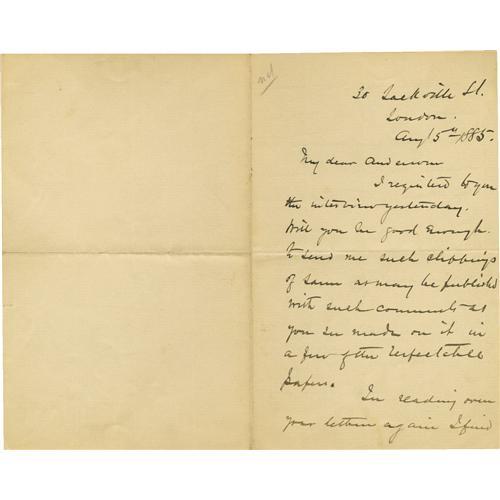 30 Sackville St.
London.
Aug 5th 1885.
My dear Anderson
I registered to you
the interview yesterday.
Will you be good enough
to send me such clippings
of same as may be published
with such comments as
you see made on it in
a few of the respectable
papers.
In reading over
your letters again I find